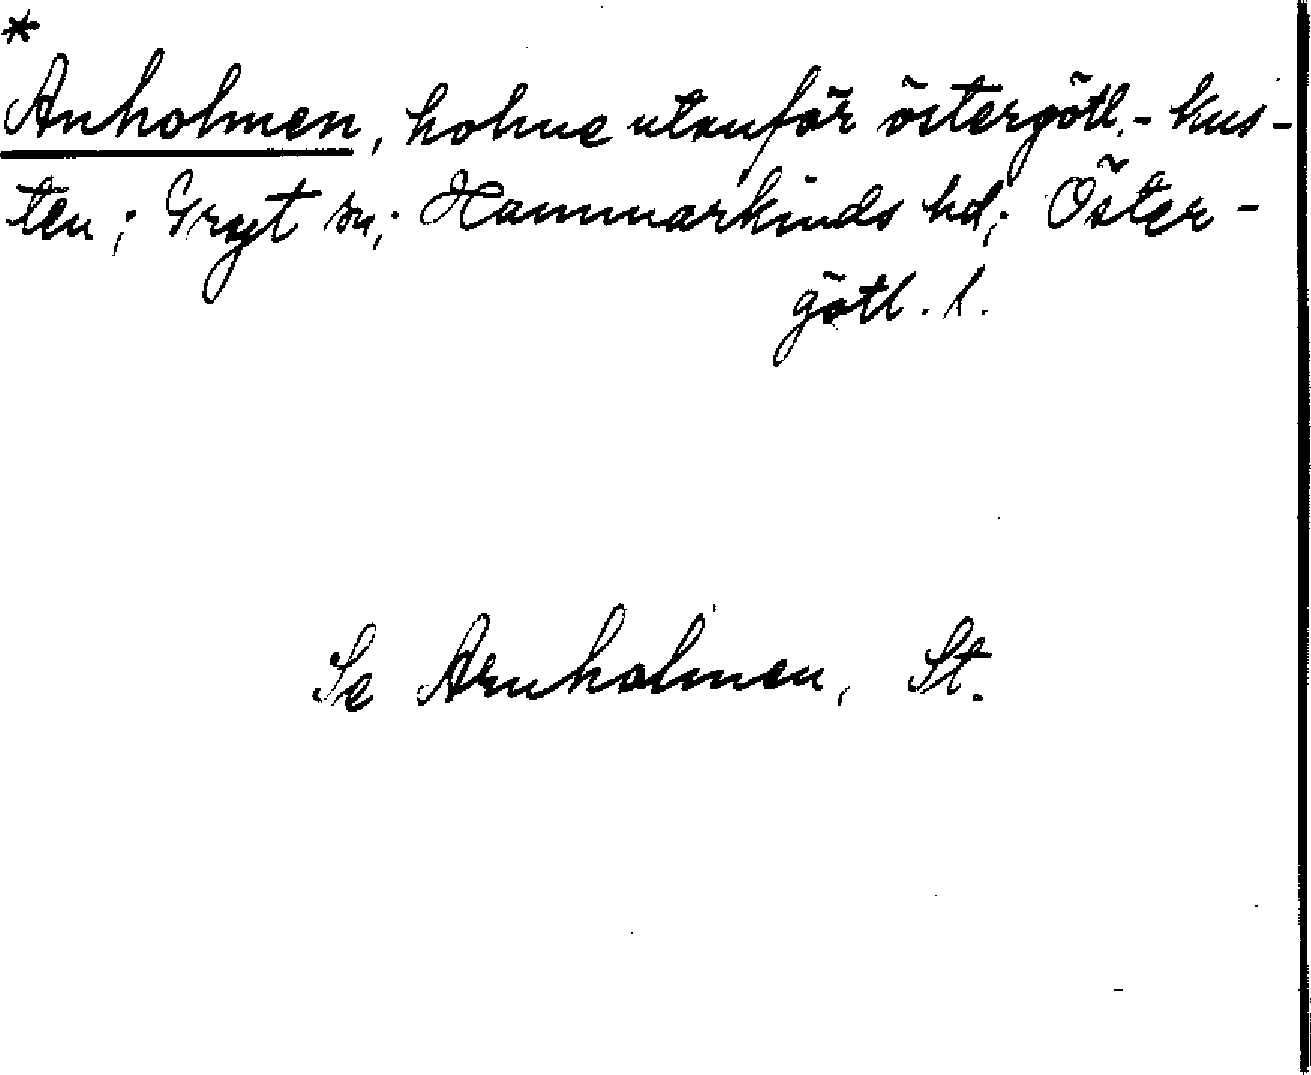 *
Anholmen, holme utanför östergötl.-kus-
ten; Gryt sn; Hammarkinds hd; Öster-
götl. l.
Se Arnholmen, St.